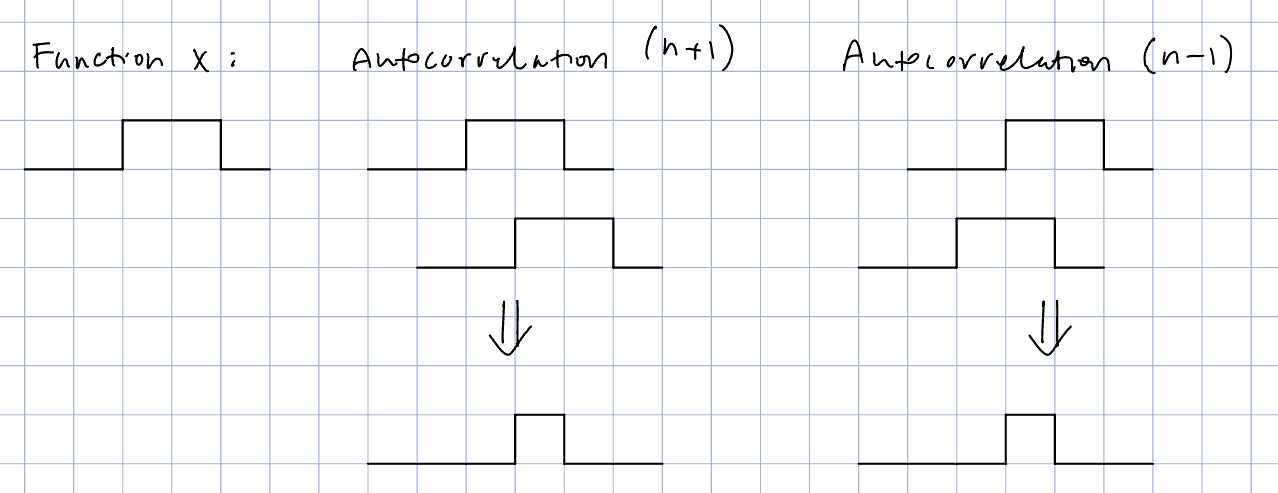 Function x :
Autocorrelation (n+1)
Autocorrelation (n-1)